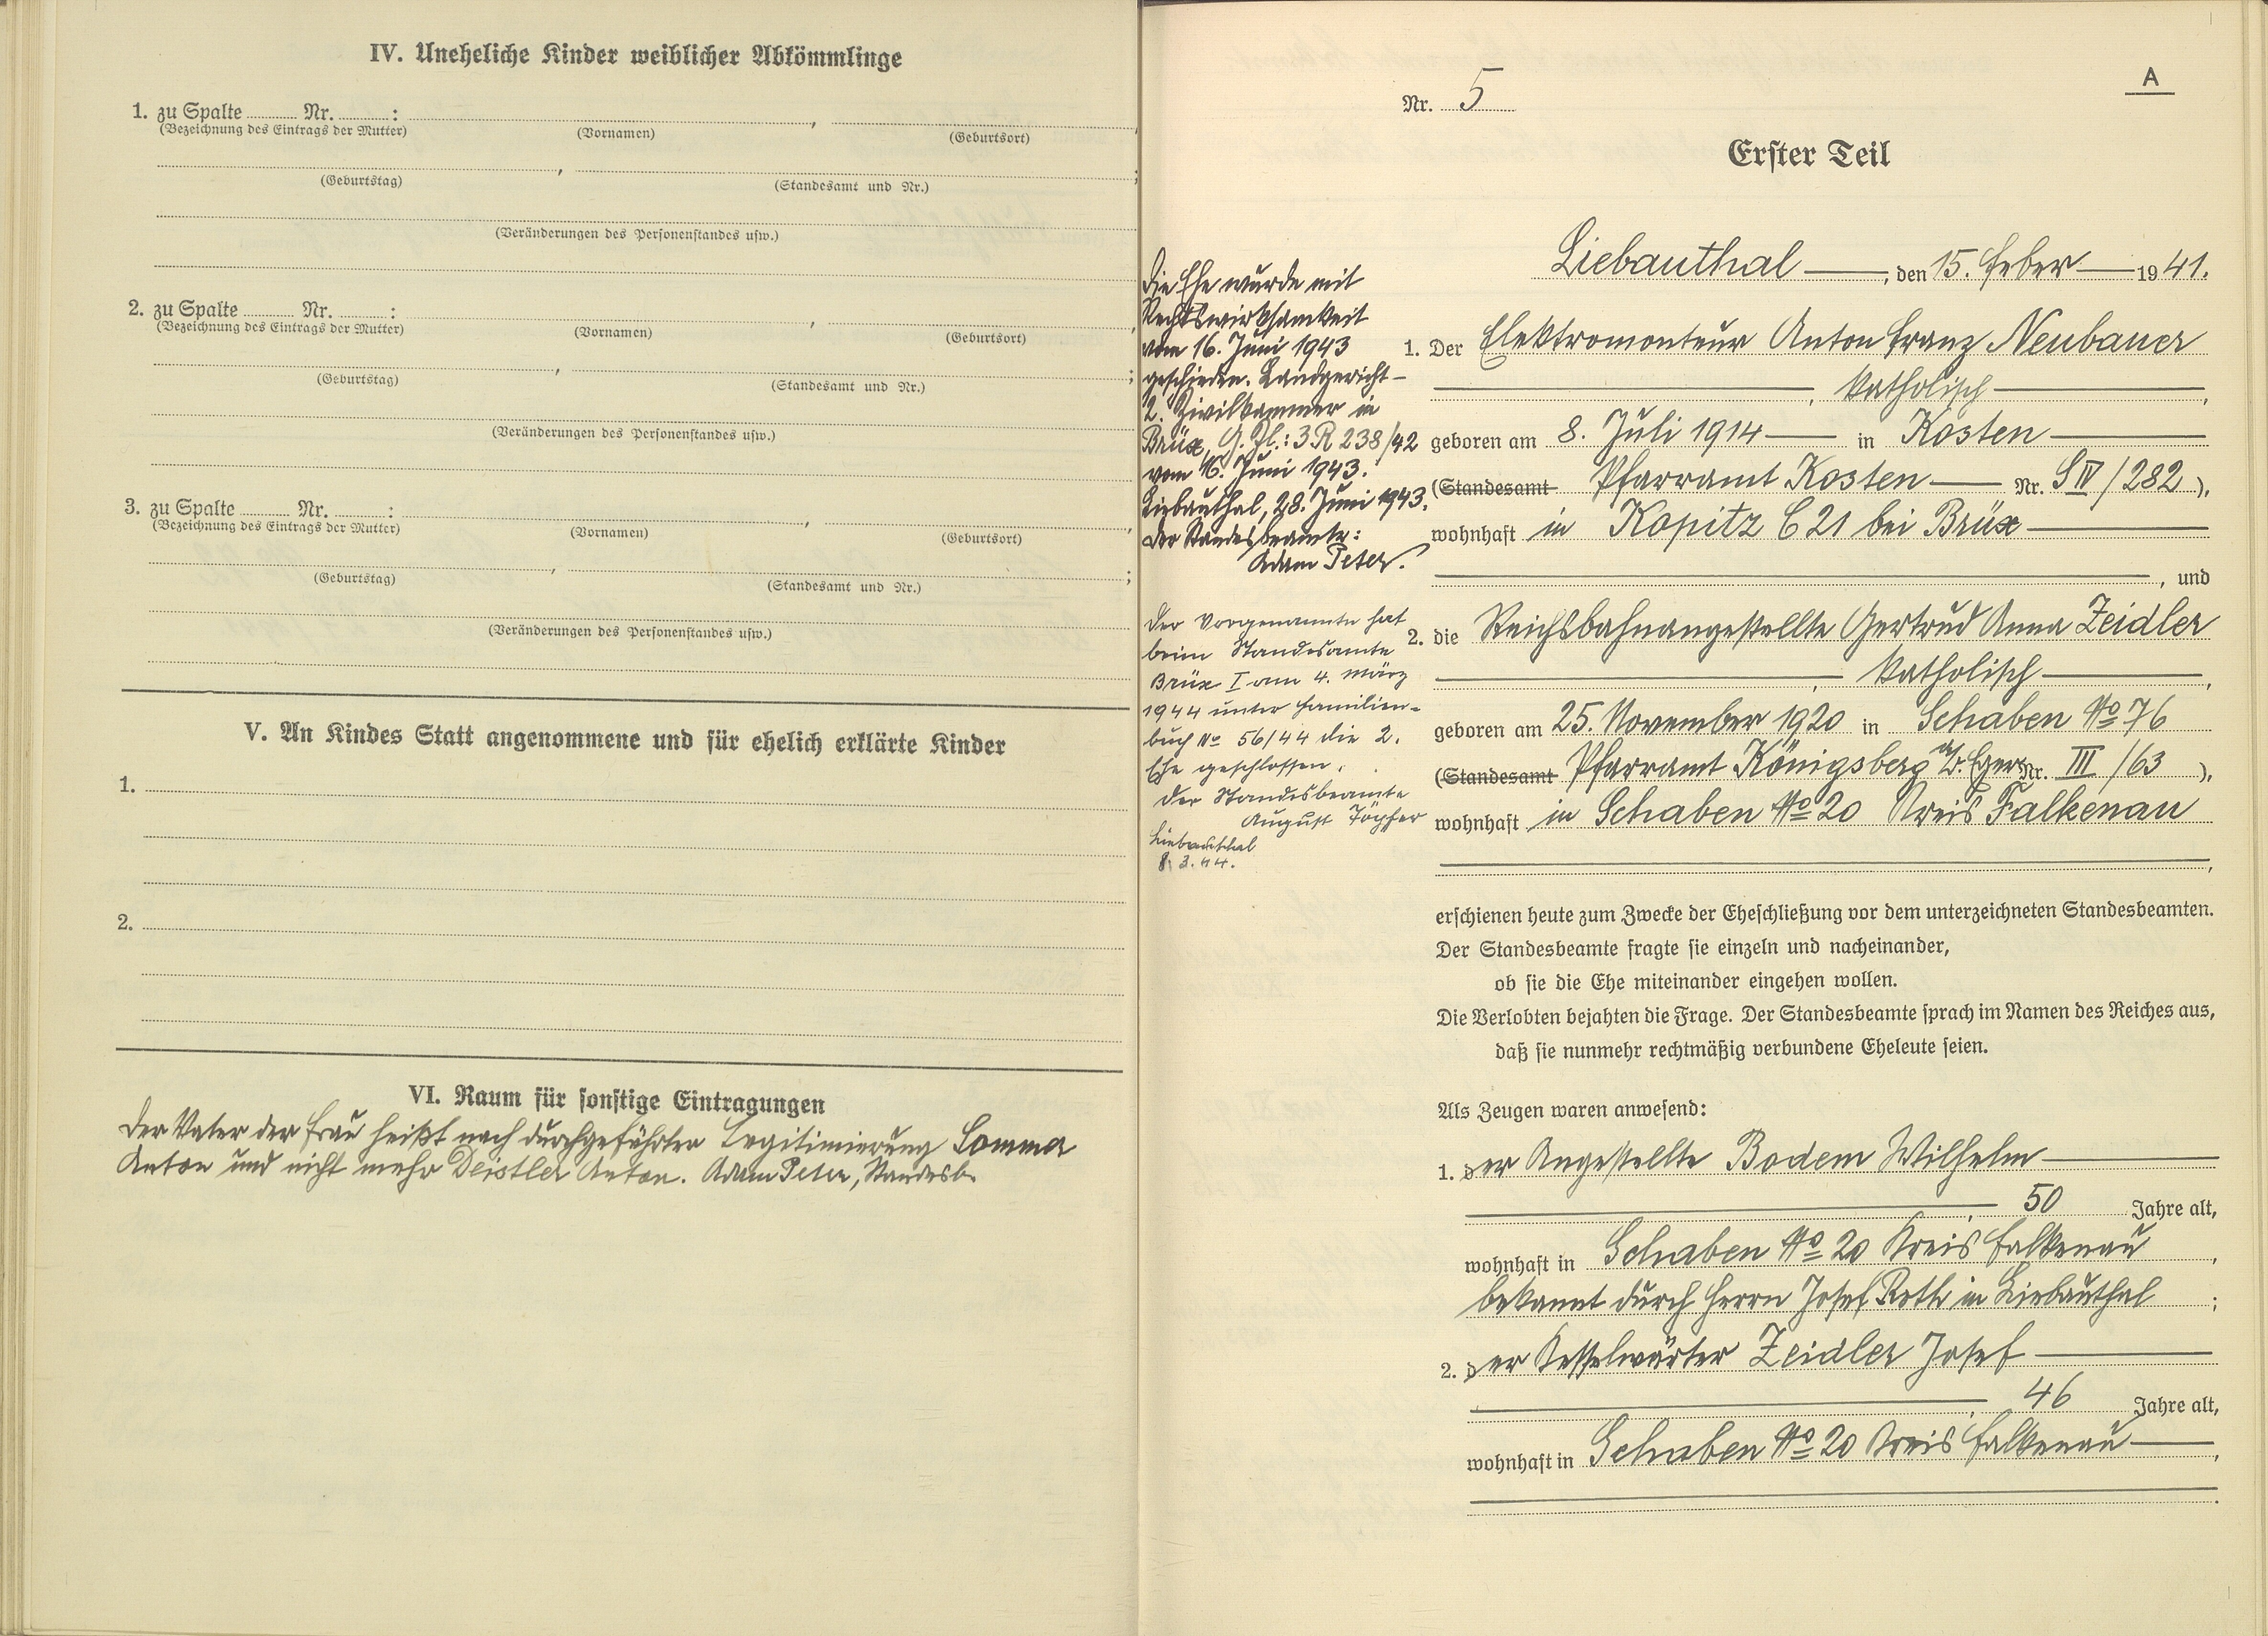 IV. Uneheliche Kinder weiblicher Abkömmlinge
1. zu Spalte ........ Nr. ........ :
(Bezeichnung des Eintrags der Mutter) (Vornamen) (Geburtsort)
(Geburtstag) (Standesamt und Nr.)
(Veränderungen des Personenstandes usw.)
2. zu Spalte ........ Nr. ........ :
(Bezeichnung des Eintrags der Mutter) (Vornamen) (Geburtsort)
(Geburtstag) (Standesamt und Nr.)
(Veränderungen des Personenstandes usw.)
3. zu Spalte ........ Nr. ........ :
(Bezeichnung des Eintrags der Mutter) (Vornamen) (Geburtsort)
(Geburtstag) (Standesamt und Nr.)
(Veränderungen des Personenstandes usw.)
V. An Kindes Statt angenommene und für ehelich erklärte Kinder
1.
2.
VI. Raum für sonstige Eintragungen
Der Vater der Frau heißt nach durchgeführter Legitimierung Sommer
Anton und nicht mehr Deistler Anton. Adam Peter, Standesb.
A
Nr. 5
Erster Teil
Liebauthal, den 15. Feber 1941.
Die Ehe wurde mit
Rechtswirksamkeit
vom 16. Juni 1943
geschieden. Landgericht –
2. Zivilkammer in
Brüx, G. Zl.: 3 R 238/42
vom 16. Juni 1943.
Liebauthal, 28. Juni 1943.
Der Standesbeamte:
Adam Peter.
Der Vorgenannte hat
beim Standesamte
Brüx I am 4. März
1944 unter Familien-
buch No 56/44 die 2.
Ehe geschlossen.
Der Standesbeamte
August Töpfer
Liebauthal
8. 3. 44.
1. Der Elektromonteur Anton Franz Neubauer
, katholisch,
geboren am 8. Juli 1914 in Kosten
(Standesamt Pfarramt Kosten Nr. S IV/282),
wohnhaft in Kopitz C 21 bei Brüx
, und
2. die Reichsbahnangestellte Gertrud Anna Zeidler
, katholisch,
geboren am 25. November 1920 in Schaben No 76
(Standesamt Pfarramt Königsberg a/d. Eger Nr. III/63),
wohnhaft in Schaben No 20 Kreis Falkenau
,
erschienen heute zum Zwecke der Eheschließung vor dem unterzeichneten Standesbeamten.
Der Standesbeamte fragte sie einzeln und nacheinander,
ob sie die Ehe miteinander eingehen wollen.
Die Verlobten bejahten die Frage. Der Standesbeamte sprach im Namen des Reiches aus,
daß sie nunmehr rechtmäßig verbundene Eheleute seien.
Als Zeugen waren anwesend:
1. der Angestellte Bodem Wilhelm
, 50 Jahre alt,
wohnhaft in Schaben No 20 Kreis Falkenau,
bekannt durch Herrn Josef Roth in Liebauthal;
2. der Kesselwärter Zeidler Josef
, 46 Jahre alt,
wohnhaft in Schaben No 20 Kreis Falkenau,